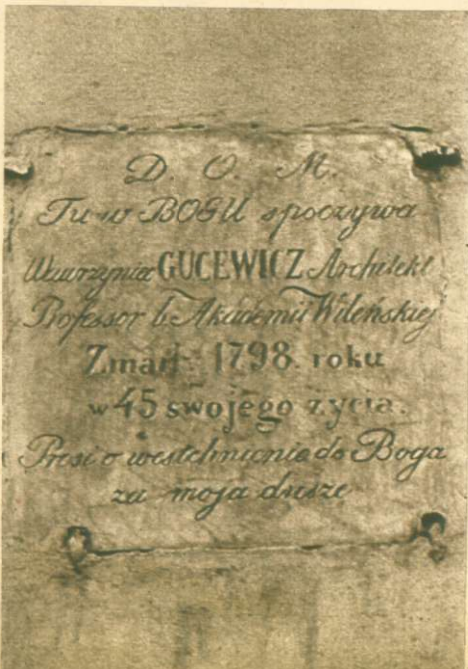 D. O. M.
Tu w BOGU spoczywa
Wawrzyniec GUCEWICZ Architekt
Professor b. Akademii Wileńskiej
Zmarł 1798. roku
w 45 swojego życia.
Prosi o westchnienie do Boga
za moja dusze